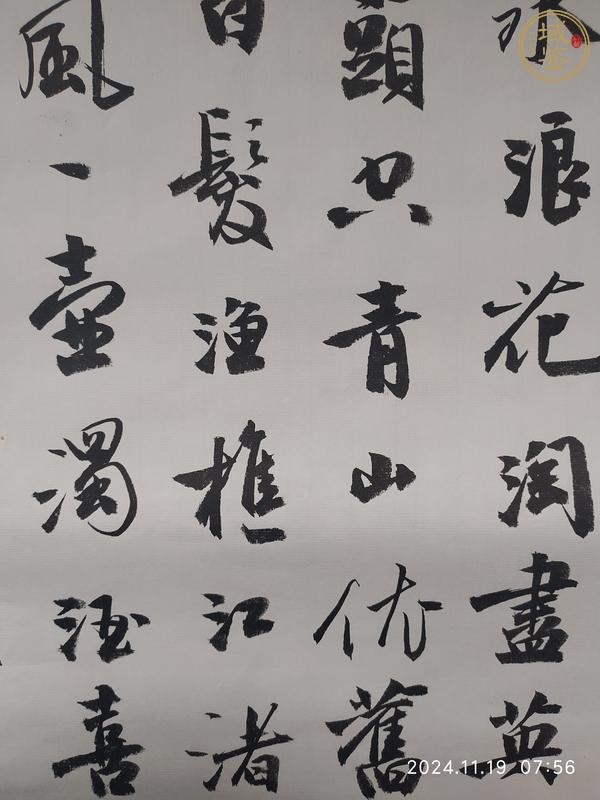 浪花淘盡英
頭空青山依舊
白髮漁樵江渚
風一壺濁酒喜
域鉴
2024.11.19 07:56